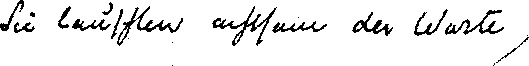 Sie lauschten achtsam der Worte,